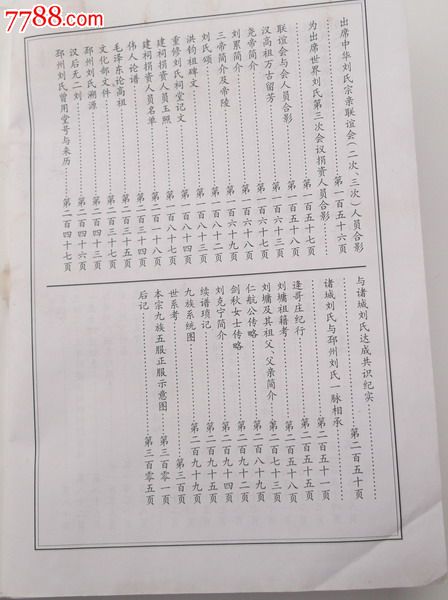 7788.com
出席中华刘氏宗亲联谊会(二次、三次)人员合影 第一百五十六页
为出席世界刘氏第三次会议捐资人员合影 第一百五十七页
联谊会与会人员合影 第一百五十八页
汉高祖万古留芳 第一百六十七页
尧帝简介
刘累简介 第一百六十九页
三帝简介及帝陵
刘氏颂 第一百八十二页
洪钧祖碑文 第一百八十三页
重修刘氏祠堂记文 第一百八十七页
建祠捐资人员玉照
建祠捐资人员名单
伟人论谱
毛泽东论高祖 第二百三十五页
文化部文件
邳州刘氏溯源 第二百四十三页
汉后无二刘 第二百四十六页
邳州刘氏曾用堂号与来历 第二百四十七页
与诸城刘氏达成共识纪实 第二百五十页
诸城刘氏与邳州刘氏一脉相承 第二百五十一页
逄哥庄纪行 第二百五十五页
刘墉祖籍考 第二百五十八页
刘墉及其祖父、父亲简介 第二百七十三页
仁航公传略 第二百八十九页
剑秋女士传略 第二百九十二页
刘克宁简介 第二百九十四页
续谱琐记 第二百九十七页
九族系统图 第二百九十九页
世系考 第三百页
本宗九族五服正服示意图 第三百零一页
后记 第三百零五页